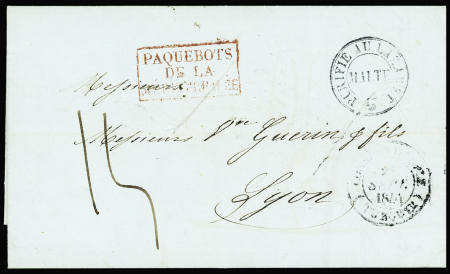 PAQUEBOTS
DE LA
PURIFIÉ AU LAZARET
MALTE
Messieurs
Messieurs Vve Guerin & fils
Lyon
15